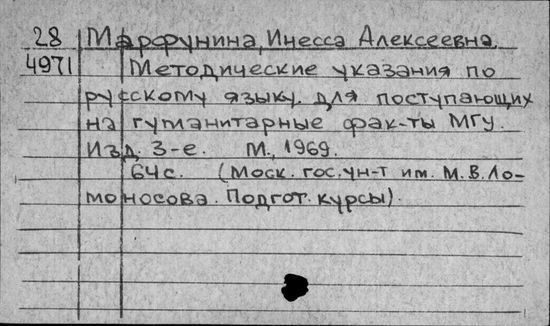 28 Марфунина, Инесса Алексеевна.
4971 Методические указания по
русскому языку для поступающих
на гуманитарные фак-ты МГУ.
Изд. 3-е. М., 1969.
64с. (Моск. гос. ун-т им. М.В.Ло-
моносова. Подгот. курсы).